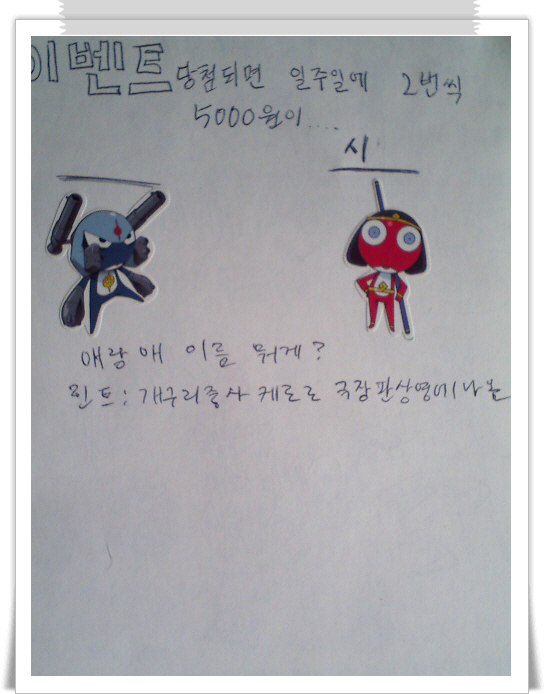 이벤트 당첨되면 일주일에 2번씩
5000원이....
시
얘랑 얘 이름 뭐게?
힌트: 개구리중사 케로로 극장판상영에나옴